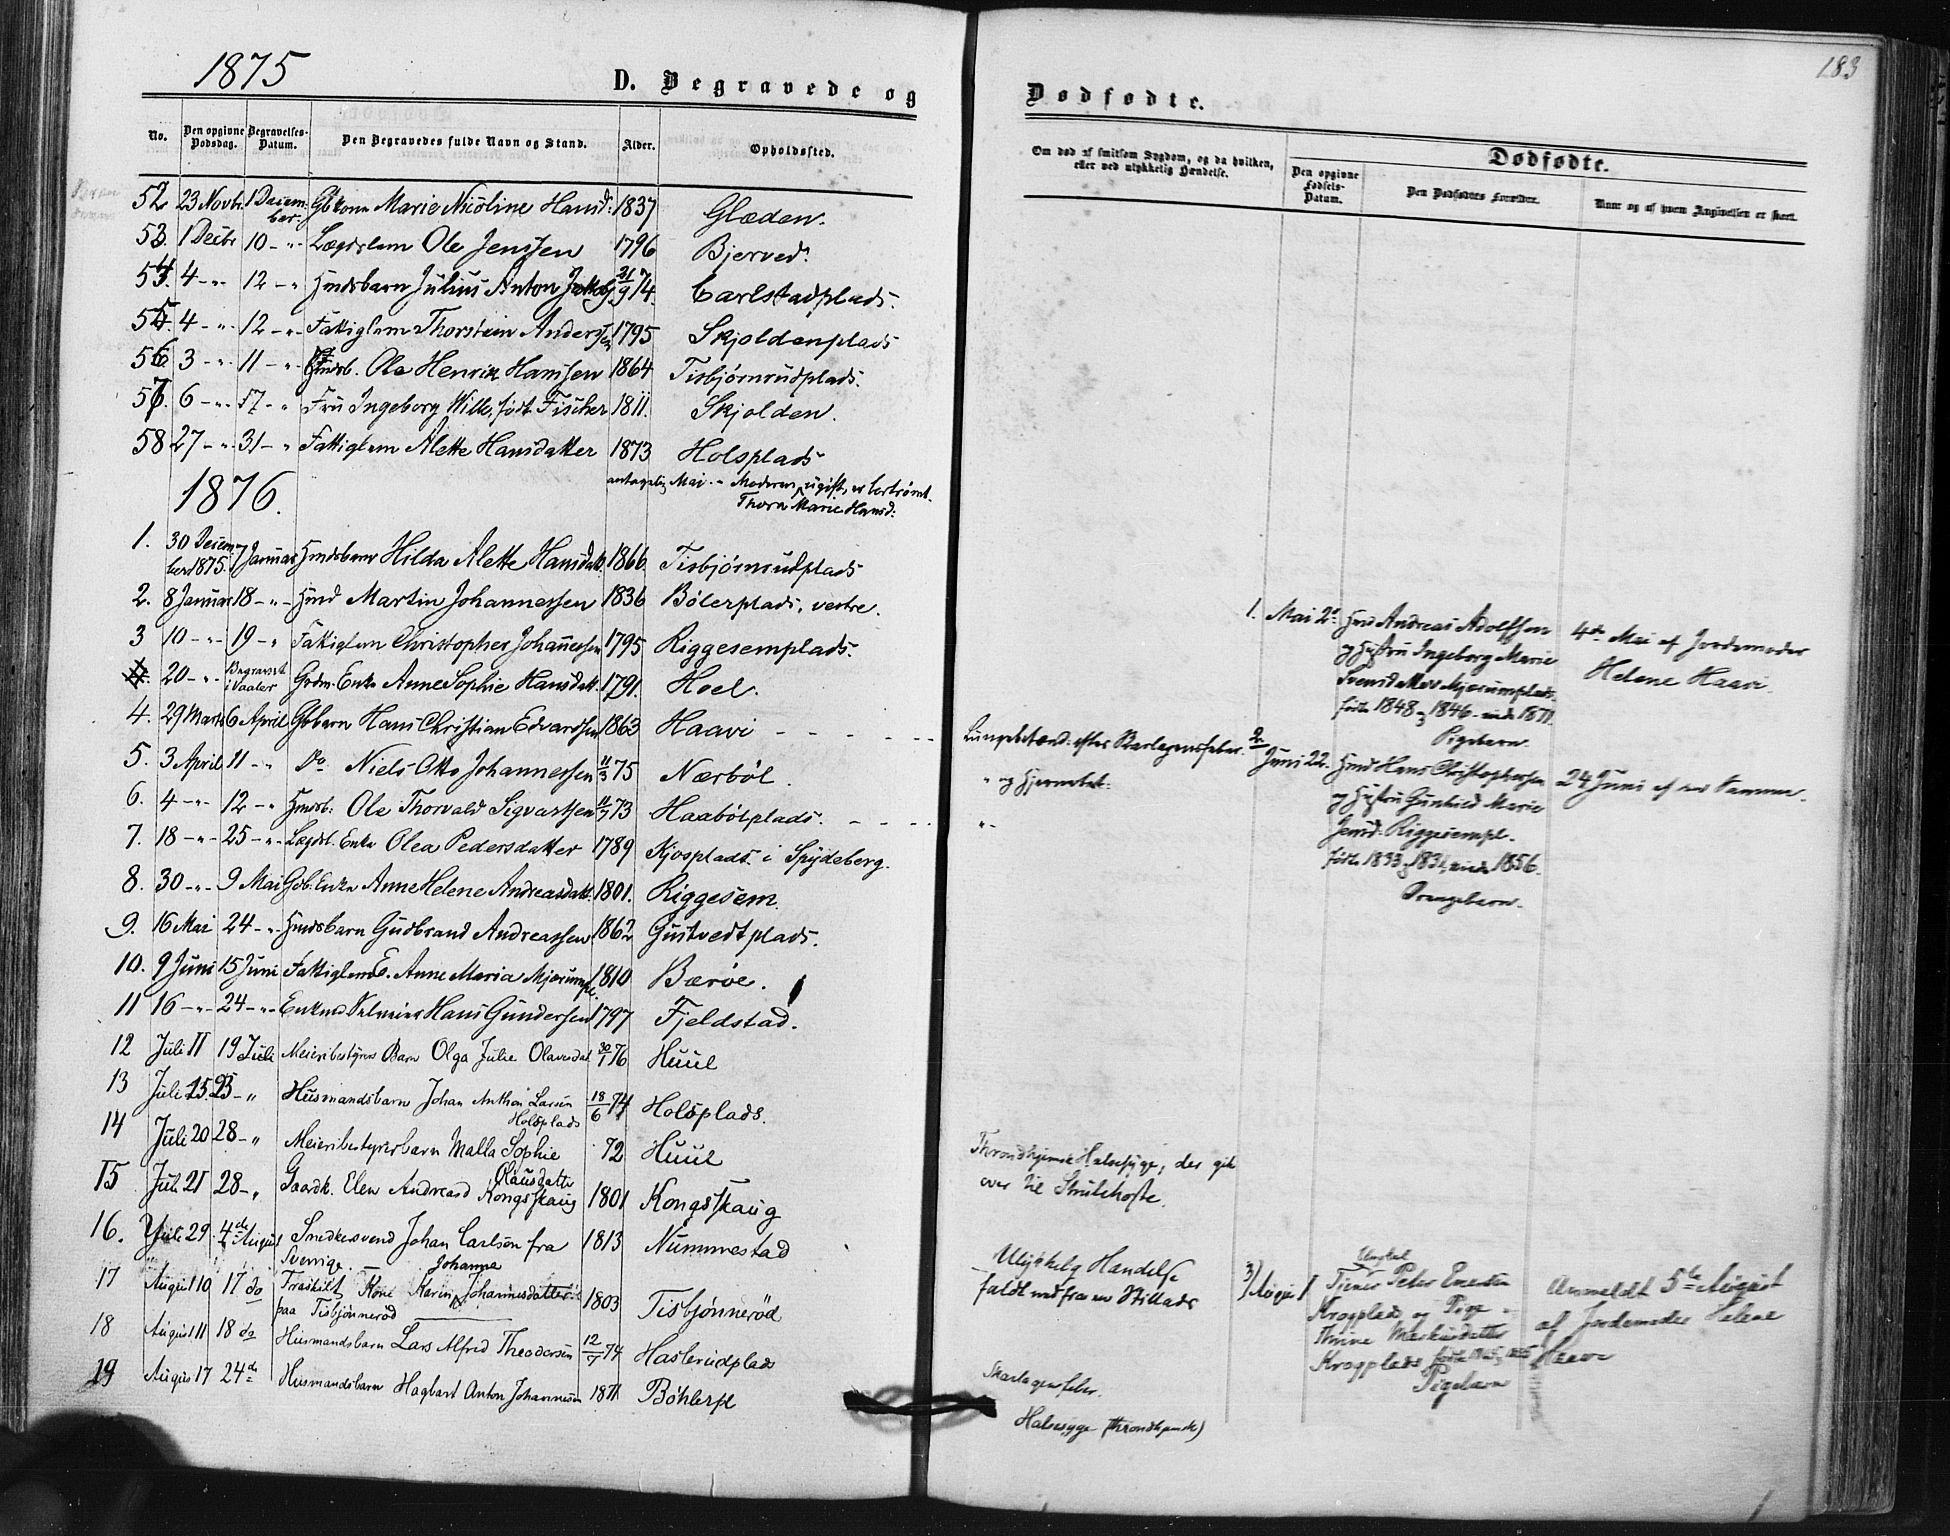 1875
D. Begravede og
No.
Den opgivne Dødsdag.
Begravelses-Datum.
Den Begravedes fulde Navn og Stand.
Alder.
Opholdssted.
52 23 Novbr. 1 Decem-ber. Gbkone Marie Nicoline Hansd: 1837 Glæden.
53. 1 Decbr 10 - " - Lægdslem Ole Jenssen 1796 Bjerved.
54. 4 - " - 12 - " Hmdsbarn Julius Anton Jakobs 21/9 74. Carlstadplads.
55. 4 - " 12 - " Fattiglem Thorstein Anderssen 1795 Skjoldenplads
56. 3 - " 11 - " Hmdsb. Ole Henrik Hanssen 1864 Tisbjørnrudplads.
57. 6 - " 17 - " Fru Ingeborg Wille, født Fischer 1811. Skjolden.
58 27 - " 31 - " Fattiglem Alette Hansdatter 1873 Holsplads
antagelig Mai - Moderen, ugift, er bortrømt.
Thora Marie Hansd:
1876.
1. 30 Decem-ber 1875. 7 Januar Hmdsbarn Hilda Alette Hansdatt. 1866 Tisbjørnrudplads
2. 8 Januar 18 - " - Hmd Martin Johannessen 1836 Bölerplads, vestre.
3 10 - " - 19 - " Fattiglem Christopher Johannessen 1795 Riggesemplads.
4. 20 - " - Begravet i Vaaler Grdm. Enke Anne Sophie Hansdatt. 1791. Hoel.
4. 29 Marts 6 April Gbbarn Hans Christian Edvardssen 1863 Haavi
5. 3 April 11 - " Do Niels Otto Johannessen 11/3 75 Nærböl.
6. 4 - " - 12 - " Hmdsb. Ole Thorvald Sigvartssen 11/7 73 Haabölplads.
7. 18 - " 25 - " - Lægdsl. Enke Olea Pedersdatter 1789 Njosplads i Spydeberg.
8. 30 - " - 9 Mai Gdb. Enke Anne Helene Andreasdatt. 1801. Riggesem.
9. 16 Mai 24 - " - Hmdsbarn Gudbrand Andreassen 1862 Gustvedtplads.
10. 9 Juni 15 Juni Fattiglem E. Anne Maria Mjærumpl. 1810 Bærøe.
11 16 - " - 24 - " - Enkemd Hans Gundersen 1797 Fjeldstad.
12 Juli 11 19 Juli Meieribestyrers Barn Olga Julie Olavesdat 30/1 76 Huul
13 Juli 15 23 - " Husmandsbarn Johan Anthon Larsen Holsplads 18/6 74 Holsplads.
14 Juli 20 28 - " Meieribestyrerbarn Malla Sophie Olausdatter 72 Huul
15 Juli 21 28 - " Gaardk. Elen Andreasd Kongsskaug 1801 Kongsskaug
16. Juli 29 4de August Snedkersvend Johan Carlsen fra Sverrige. 1813 Nummestad
17 August 10 17 do Fraskilt Kone Karin Johanna Johannesdatter paa Tisbjønnerød 1803 Tisbjønnerød
18 August 11 18 do Husmandsbarn Lars Alfred Theodorsen 12/7 74 Haslerudplads
19 August 17 24de Husmandsbarn Hagbart Anton Johannesen 1871 Böhlerpl
183
Dødfødte.
Om død af smitsom Sygdom, og da hvilken, eller ved ulykkelig Hændelse.
Dødfødte.
Den opgivne Fødsels-Datum.
Den Dødfødtes Forældre.
Naar og af hvem Angivelsen er skeet.
Lungebetænd: efter Skarlagensfeber.
" og Hjernebet:
" -
Throndhjemsk Halssyge, der gik
over til Strubehoste.
Ulykkelig Hændelse
faldt ned fra en Stillads
Skarlagensfeber.
Halssyge (throndhjemsk)
1. Mai 2den Hmd Andreas Adolfssen
og Hustru Ingeborg Marie
Svensdatter Mjærumplads,
fødte 1848 og 1846 - viede 1871.
Pigebarn.
4de Mai af Jordemoder
Helene Haavi.
2. Juni 22. Hmd Hans Christophersen
og Hustru Gunhild Marie
Jensd: Riggesempl.
fødte 1833 og 1831, viede 1856.
Drengebarn.
24 Juni af samme.
3) August 1 Ungkarl
Tjener Peter Enersen
Krogplads og Pige
Thrine Markusdatter
Krogplads
Pigebarn
Anmeldt 5te August
af Jordemoder Helene
Haave